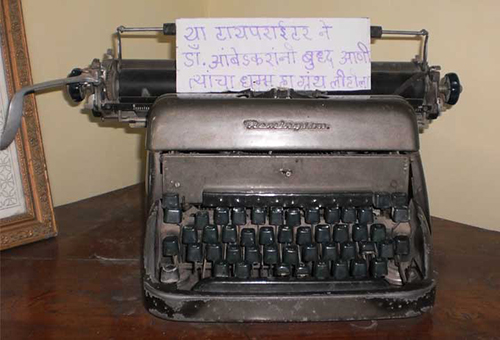 या टायपराईटर ने
डॉ. आंबेडकरांनी बुध्द आणी
त्यांचा धम्म हा ग्रंथ लीहीला
Remington